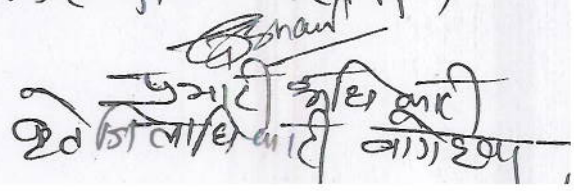 प्रभारी अधिकारी
कृते जिलाधिकारी बागेश्वर